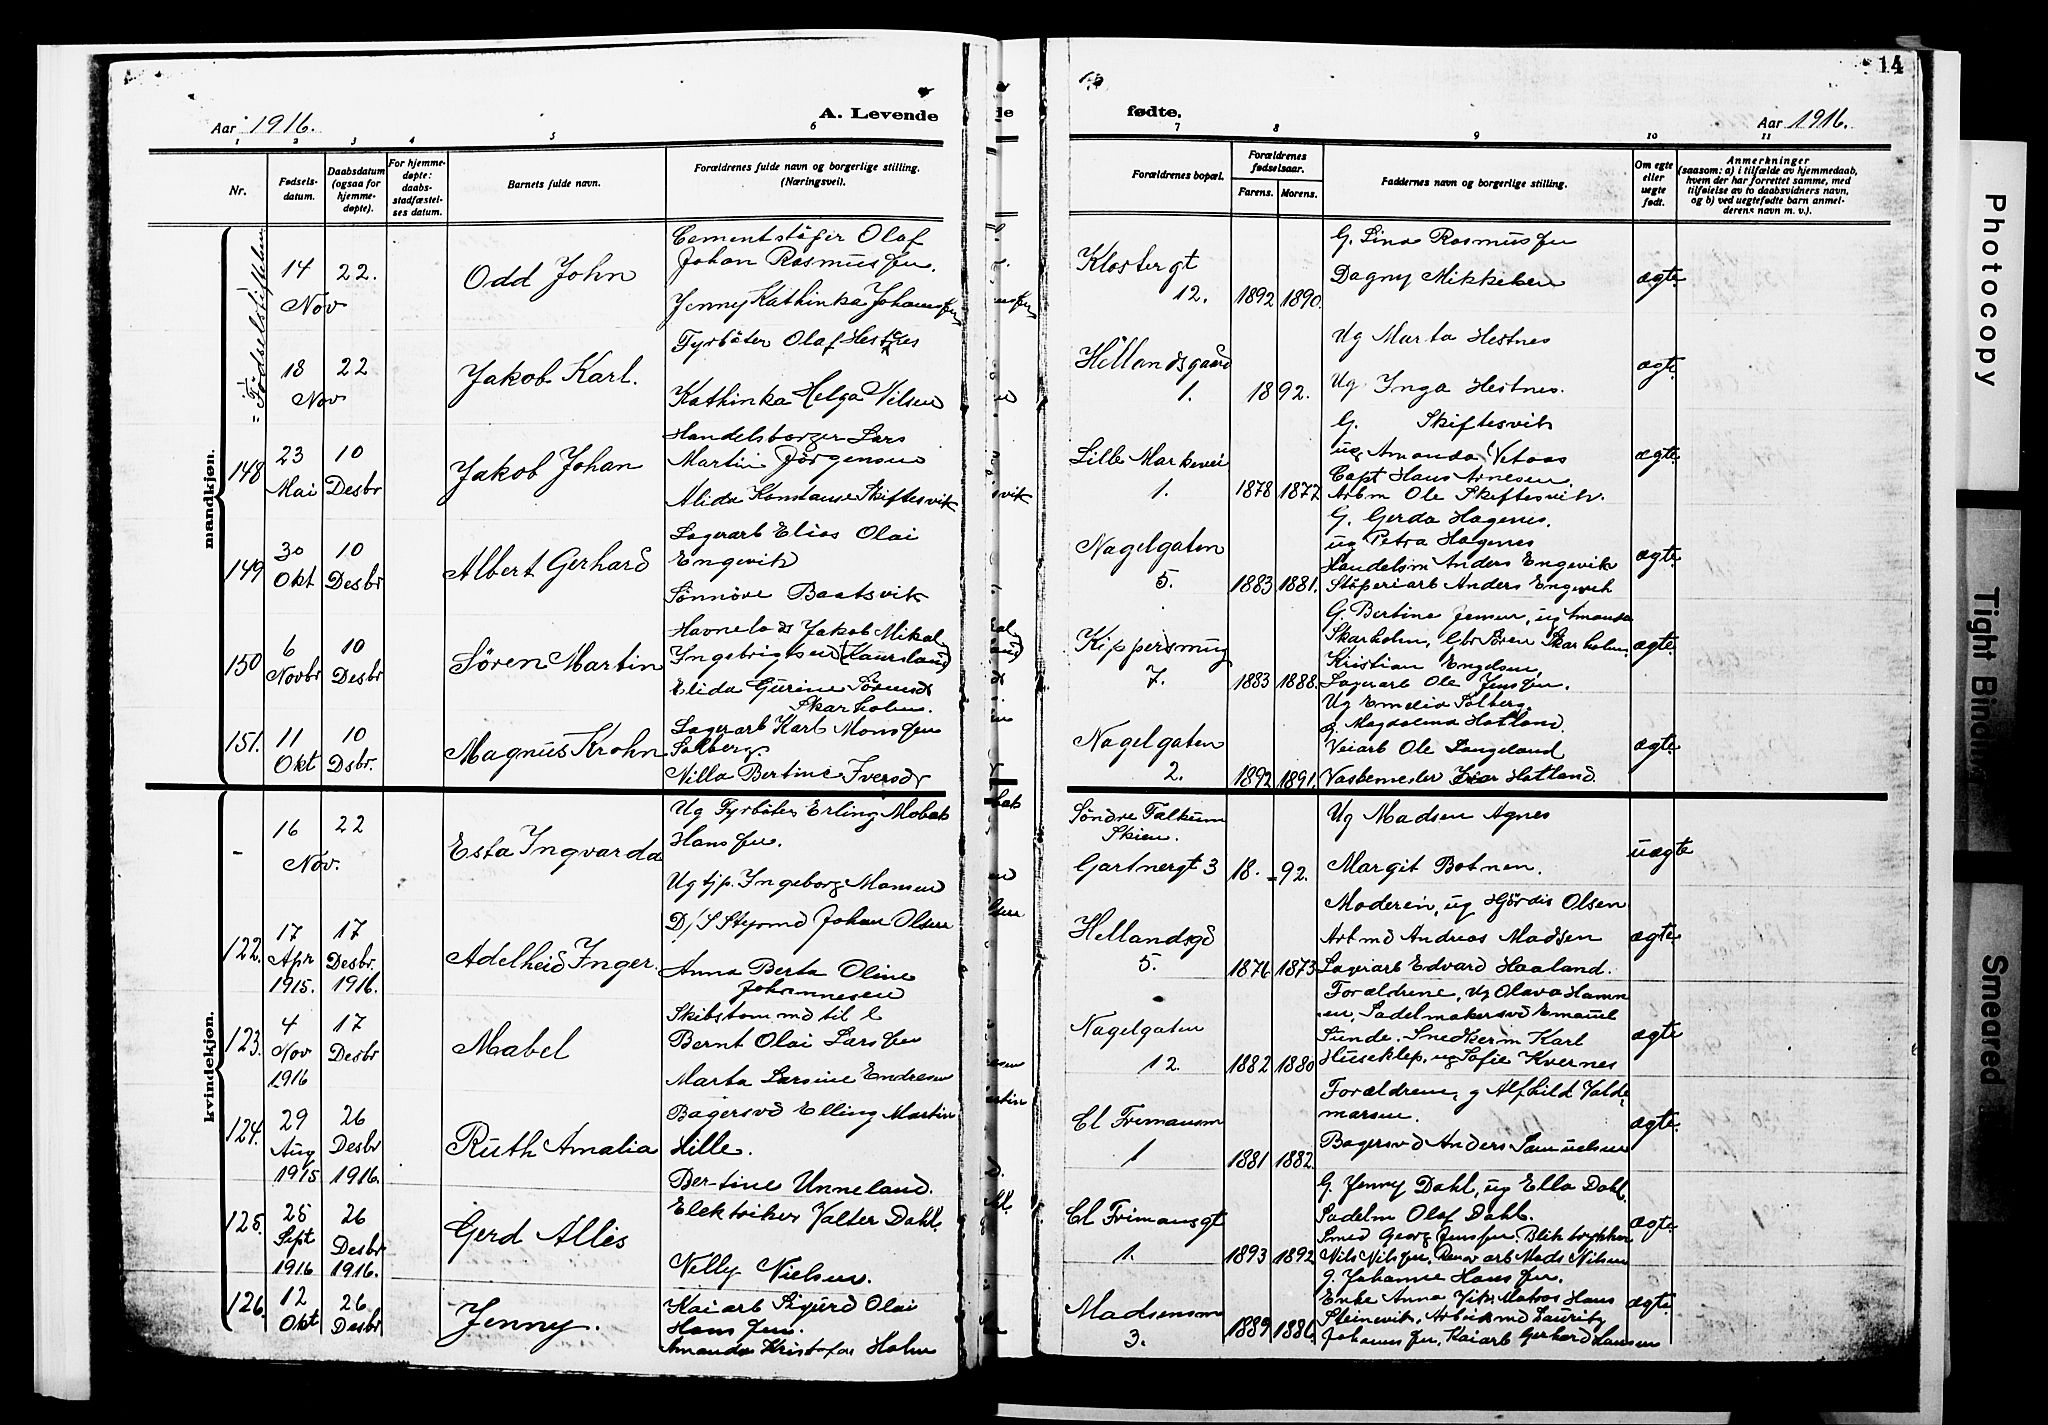 14
A. Levende
fødte.
Aar 1916.
Aar 1916.
1 2 3 4 5 6 7 8 9 10 11
Nr.
Fødsels-
datum.
Daabsdatum
(ogsaa for
hjemme-
døpte).
For hjemme-
døpte:
daabs-
stadfæstel-
ses datum.
Barnets fulde navn.
Forældrenes fulde navn og borgerlige stilling.
(Næringsvei).
Forældrenes bopæl.
Forældrenes
fødselsaar.
Farens. Morens.
Faddernes navn og borgerlige stilling.
Om egte
eller
uegte
født.
Anmerkninger
(saasom: a) i tilfælde av hjemmedaab,
hvem der har forrettet samme, med
tilføielse av to daabsvidners navn,
og b) ved uegtefødte barn anmel-
derens navn m. v.).
mandkjøn.
= Fødselsstiftelsen
14 Nov
22.
Odd John
Cementstøper Olaf
Johan Rasmussen.
Jenny Kathinka Johannessen
Klostergt
12.
1892 1890.
G. Lina Rasmussen
Dagny Mikkelsen
ægte
18 Nov
22
Jakob Karl.
Fyrbøter Olaf Hestnes
Kathinka Helga Nilsen
Hellandsgaard
1.
1892.
Ug Marta Hestnes
Ug Inga Hestnes.
ægte.
148
23 Mai
10 Desbr
Jakob Johan
Handelsborger Lars
Martin Jørgensen
Alida Konstanse Skiftesvik
Lille Markevei
1.
1878 1877
G. Skiftesvik
ug Amanda Vetaas
Capt Hans Arnesen.
Arbm Ole Skiftesvik.
ægte.
149
30 Okt
10 Desbr
Albert Gerhard
Lagerarb Elias Olai
Engevik
Sønnøve Baatsvik
Nagelgaten
5.
1883 1881.
G. Gerda Hagenes.
ug Petra Hagenes
Handelsm Anders Engevik
Støperiarb Anders Engevik
ægte.
150
6 Novbr
10 Desbr
Søren Martin
Havnelods Jakob Mikal
Ingebrigtsen (Kaursland)
Elida Gurine Sørensdr
Skarholm.
Kippersmug
7.
1883 1888.
G. Bertine Jensen, ug Amanda
Skarholm, Gbr Søren Skarholm,
Kristian Engelsen,
Lagerarb Ole Jenssen.
ægte.
151.
11 Okt
10 Dsbr.
Magnus Krohn
Lagerarb Karl Monssen
Solberg.
Nilla Bertine Iversdr
Nagelgaten
2.
1892 1891.
Ug Emelia Solberg.
g. Magdalena Hatland.
Veiarb Ole Langeland
Vaskemester Ivar Hatland.
ægte.
kvindekjøn.
-
16 Nov.
22
Esta Ingvarda
Ug Fyrbøter Erling Mobak
Hanssen.
Ug tjp. Ingeborg Monsen
Søndre Falkum
Skien.
Gartnergt 3
18.-92.
Ug Madsen Agnes
Margit Botnen.
uægte
122.
17 Apr 1915.
17 Desbr. 1916.
Adelheid Inger.
D/S Styrmd Johan Olsen
Anna Berta Oline
Johannesen
Hellandsgd
5.
1876 1873
Moderen, ug Hjørdis Olsen
Arbmd Andreas Madsen
Lagerarb Edvard Haaland.
ægte.
123.
4 Nov 1916
17 Desbr
Mabel
Skibstømmd til l
Bernt Olai Larssen
Marta Larsine Endresen
Nagelgaten
12.
1882 1880
Forældrene, ug Olava Hamn
en, Sadelmakersvd Emanuel
Sunde. Snedkerm Karl
Huseklep, ug Sofie Kvernes
ægte
124.
29 Aug 1915
26 Desbr 1916.
Ruth Amalia
Bagersvd Elling Martin
Hille.
Bertine Unneland.
Cl Frimansm
1
1881 1882.
Forældrene, g Alfhild Valde-
marsen.
Bagersvd Anders Samuelsen
ægte.
125.
25 Sept 1916
26 Desbr 1916.
Gerd Allis
Elektriker Valter Dahl.
Nelly Nielsen.
Cl Frimansgt
1.
1893 1892
G. Jenny Dahl, ug Ella Dahl.
Sadelm Olaf Dahl.
Smed Georg Jenssen. Bliktrykker
Nils Nilssen, Renov arb Mads Nilsen
ægte.
126.
12 Okt
26 Desbr
Jenny.
Kaiarb Sigurd Olai
Hanssen.
Amanda Kristofa Holm
Madsensm
3.
1889 1886.
g. Johanne Hanssen.
Enke Anna Vik. Matros Hans
Steinevik, Arbeidsmd Lauritz
Johannessen, Kaiarb Gerhard Larsen
ægte.
Photocopy
Tight Binding
Smeared